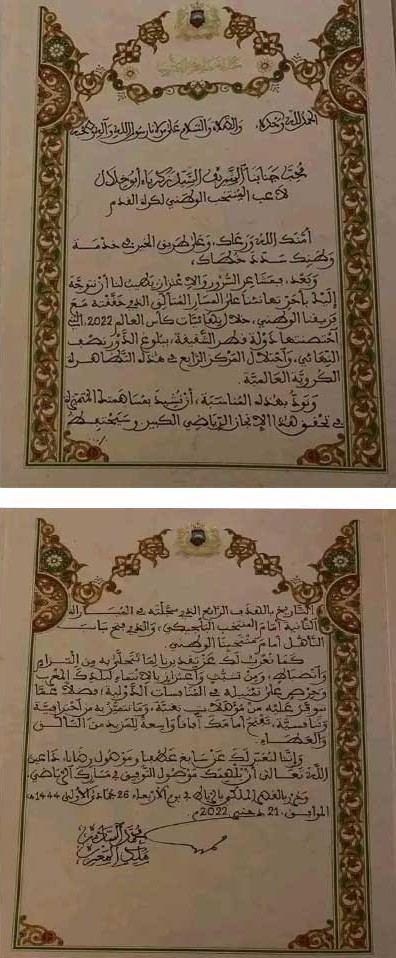 الحمد لله وحده، والصلاة والسلام على مولانا رسول الله وآله وصحبه
محب جنابنا الشريف السيد زكرياء أبو خلال
لاعب المنتخب الوطني لكرة القدم
أمنك الله ورعاك، وعلى طريق الخير في خدمة
وطنك سدد خطاك،
وبعد، فبمشاعر السرور والاعتزاز يطيب لنا أن نتوجه
إليك بأحر تهانئنا على المسار المتألق الذي حققته مع
فريقنا الوطني، خلال نهائيات كأس العالم 2022، التي
احتضنتها دولة قطر الشقيقة، ببلوغ الدور نصف
النهائي، واحتلال المركز الرابع في هذه التظاهرة
الكروية العالمية.
ونود بهذه المناسبة، أن نشيد بمساهمتك
في تحقيق هذا الإنجاز الرياضي الكبير وسيحتفظ
التاريخ بالهدف الرائع الذي سجلته في المباراة
الثانية أمام المنتخب البلجيكي، والذي فتح باب
التأهل أمام منتخبنا الوطني.
كما نعرب لك عن تقديرنا لما تتحلى به من التزام
وانضباط، ومن تشبث واعتزاز بالانتماء لبلدك المغرب
وحرص على تمثيله في المنافسات الدولية، فضلا عما
تتوفر عليه من مؤهلات تقنية، وما تتميز به من احترافية
وتنافسية، تفتح أمامك آفاقا واسعة للمزيد من التألق
والعطاء.
وإننا لنعبر لك عن سابغ عطفنا وموصول رضانا، داعين
الله تعالى أن يلهمك موصول التوفيق في مسارك الرياضي.
وحرر بالقصر الملكي بالرباط في يوم الأربعاء 26 جمادى الأولى 1444هـ
الموافق 21 دجنبر 2022م.
محمد السادس
ملك المغرب